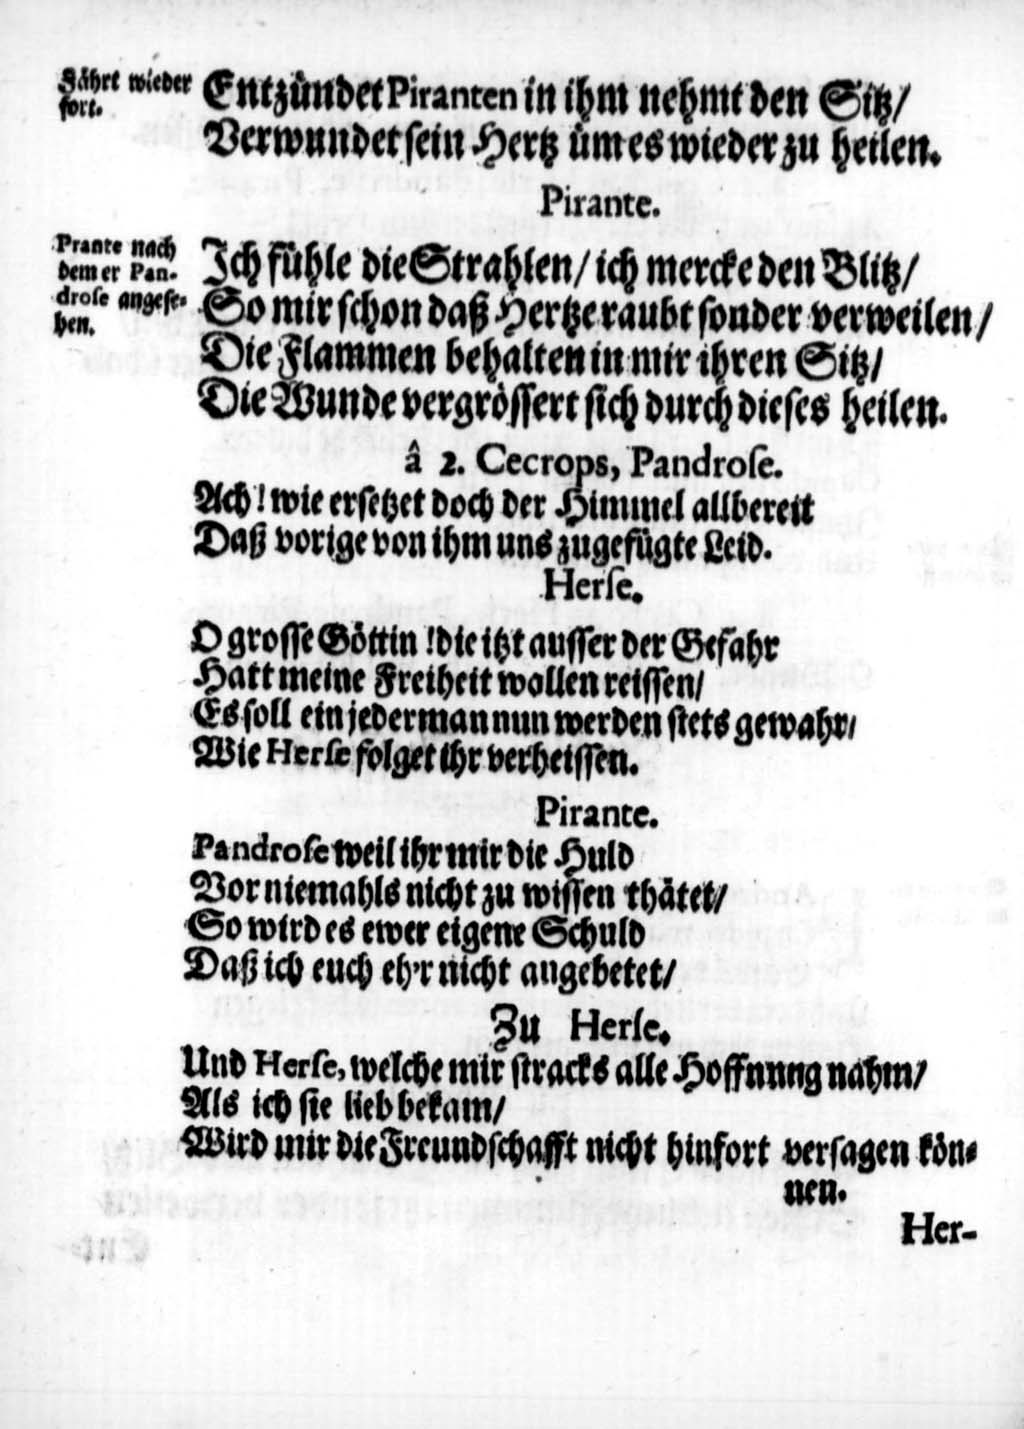 Fährt wieder
fort.
Entzündet Piranten in ihm nehmt den Sitz/
Verwundet sein Hertz üm es wieder zu heilen.
Pirante.
Prante nach
dem er Pan-
drose angese-
hen.
Ich fühle die Strahlen/ ich mercke den Blitz/
So mir schon daß Hertze raubt sonder verweilen/
Die Flammen behalten in mir ihren Sitz/
Die Wunde vergrössert sich durch dieses heilen.
â 2. Cecrops, Pandrose.
Ach! wie ersetzet doch der Himmel allbereit
Daß vorige von ihm uns zugefügte Leid.
Herse.
O grosse Göttin! die itzt ausser der Gefahr
Hatt meine Freiheit wollen reissen/
Es soll ein jederman nun werden stets gewahr/
Wie Herse folget ihr verheissen.
Pirante.
Pandrose weil ihr mir die Huld
Vor niemahls nicht zu wissen thätet/
So wird es ewer eigene Schuld
Daß ich euch eh'r nicht angebetet/
Zu Herse.
Und Herse, welche mir stracks alle Hoffnung nahm/
Als ich sie lieb bekam/
Wird mir die Freundschafft nicht hinfort versagen kön-
nen.
Her-